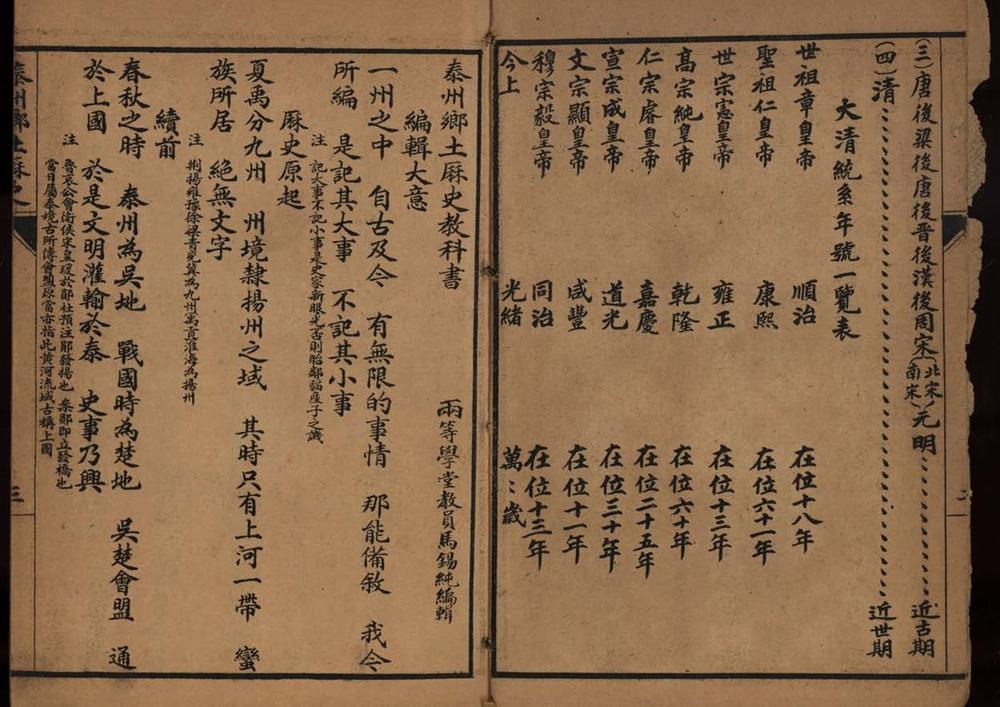 (三)唐後梁後唐後晉後漢後周宋(北宋南宋)元明、、、、、、、、近古期
(四)清、、、、、、、、、、、、、、、、、、、、近世期
大清統系年號一覽表
世祖章皇帝 順治 在位十八年
聖祖仁皇帝 康熙 在位六十一年
世宗憲皇帝 雍正 在位十三年
高宗純皇帝 乾隆 在位六十年
仁宗睿皇帝 嘉慶 在位二十五年
宣宗成皇帝 道光 在位三十年
文宗顯皇帝 咸豐 在位十一年
穆宗毅皇帝 同治 在位十三年
今上 光緒 萬〻歲
泰州鄉土厤史教科書 兩等學堂教員馬錫純編輯
編輯大意
一州之中 自古及今 有無限的事情 那能備敘 我今
所編 是記其大事 不記其小事
注 記大事不記小事是史家新眼光否則貽鄰貓產子之誚
厤史原起
夏禹分九州 州境隸揚州之域 其時只有上河一帶 蠻
族所居 絕無文字
注 荊揚雍豫徐梁青兗冀為九州禹貢淮海為揚州
續前
春秋之時 泰州為吳地 戰國時為楚地 吳楚會盟 通
於上國 於是文明灌輸於泰 史事乃興
注 魯哀公會衛侯宋皇瑗於鄖杜預注鄖發揚也 案鄖即立發橋也
當日屬泰境古所傳會盟原當亦指此黃河流域古稱上國
泰州鄉土厤史
三